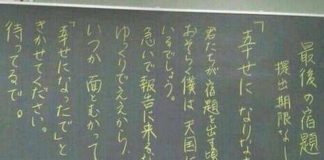 最後の宿題
提出期限な
「幸せになりな
君たちが宿題を出す頃
おそらく僕は天国に
いるでしょう。
急いで報告に来るな
ゆっくりでええから、
いつか面とむかって
「幸せになったでと
きかせてください。
待ってるで。